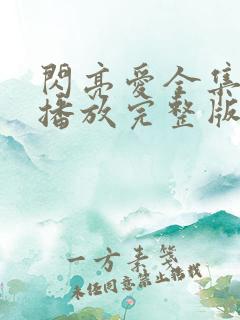 閃亮愛全集
播放完整版
一方素箋
未經同意禁止轉載